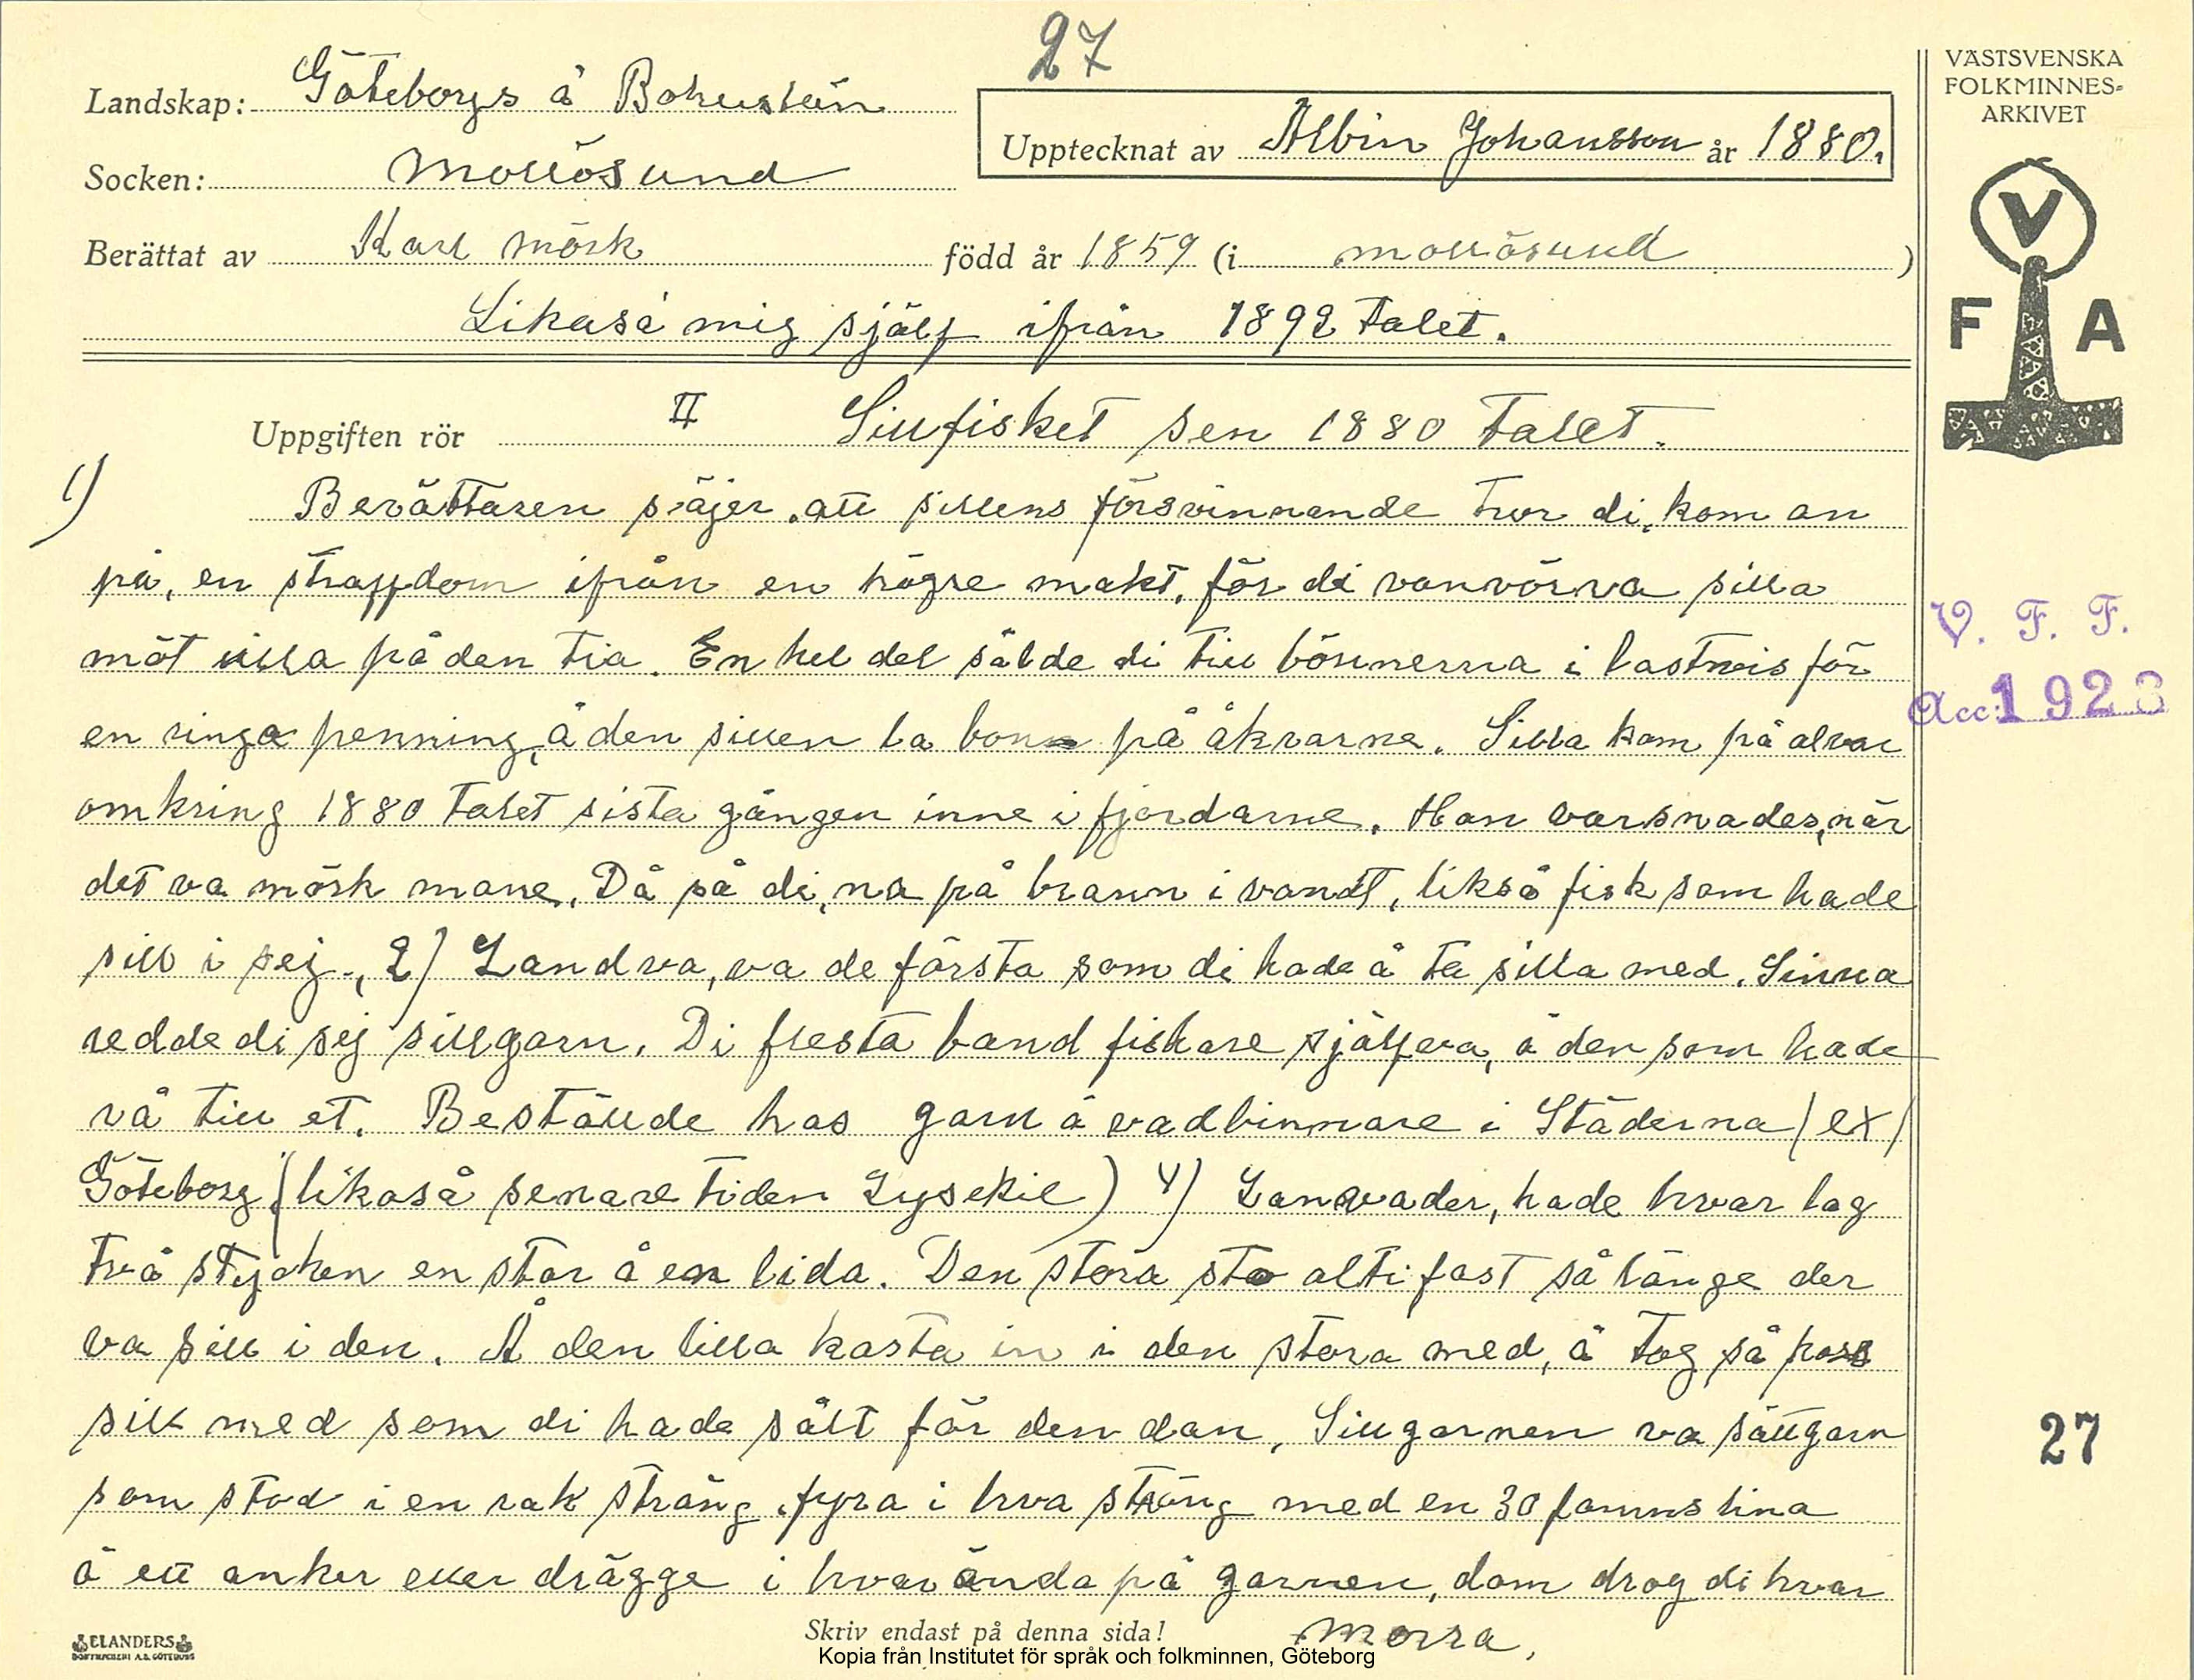 27
VÄSTSVENSKA
FOLKMINNES-
ARKIVET
Landskap: Göteborgs å Bohuslän
Upptecknat av Albin Johansson år 1880.
Socken: Mollösund
Berättat av Karl Mörk född år 1859 (i Mollösund )
Likaså mig själf ifrån 1892 talet.
V
F A
Uppgiften rör II Sillfisket sen 1880 talet.
1) Berättaren säjer, att sillens försvinnande tror di, kom an
på, en straffdom ifrån en högre makt, för di vanvörva silla
möt illa på den tia. En hel del sålde di till bönnerna i lastvis för
en ringa penning, å den sillen la bonn på åkrarne. Silla kom på alvar
omkring 1880 talet sista gången inne i fjordarne. Han varsnades, när
det va mörk mane. Då så di, na på brann i vandt, likså fisk som hade
sill i sej., 2) Landva, va de första som di hade å ta silla med. Sinna
redde di sej sillgarn. Di flesta band fiskare själfva, å den som hade
rå till et. Beställde hos garn å vadbinnare i Städerna / ex /
Göteborg (likaså senare tiden Lysekil) 4) Lanvader, hade hvar lag
två stycken en stor å en lida. Den stora sto altifast så länge der
va sill i den. Å den lilla kasta in i den stora med, å tog så pass
sill med som di hade sålt för den dan, Sillgarnen va sättgarn
som stod i en rak sträng, fyra i hva sträng med en 30 famns lina
å ett anker eller drägge i hvar ända på garnen, dom drog di hvar
morra,
V. F. F.
Acc: 1923
27
Skriv endast på denna sida!
ELANDERS
BOKTRYCKERI A.B. GÖTEBORG
Kopia från Institutet för språk och folkminnen, Göteborg